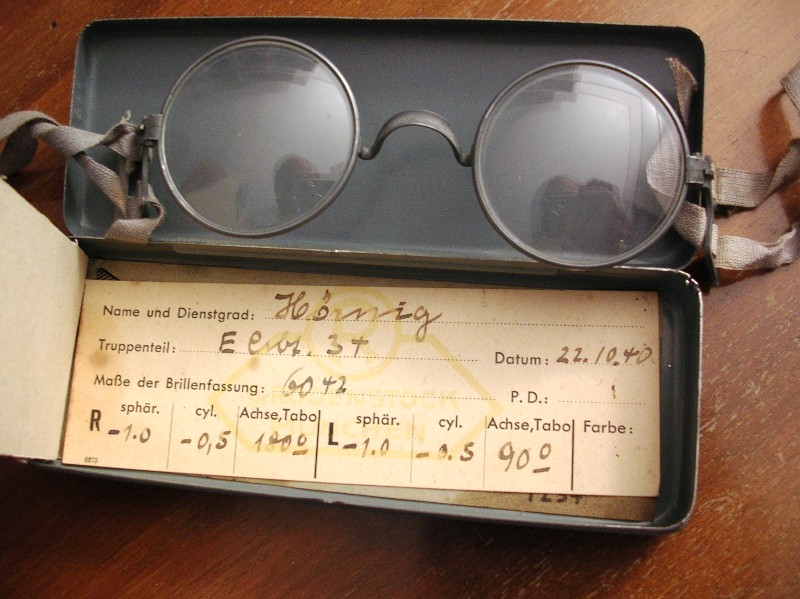 Name und Dienstgrad: Hörnig
Truppenteil: E
Datum: 22.10.40
Maße der Brillenfassung: 6042 P.D.:
sphär. cyl. Achse,Tabo sphär. cyl. Achse,Tabo Farbe:
R -1.0 -0,5 180° L -1.0 -0.5 90°
RODENSTOCK
MÜNCHEN